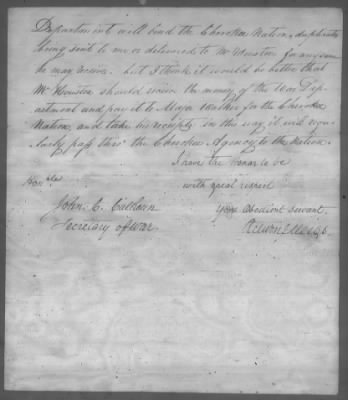 Department will bind the Cherokee Nation, duplicates
being sent to me or delivered to Mr Houston for any sum
he may receive. but I think it would be better that
Mr Houston should receive the money of the War Dep-
artment and pay it to Major for the Cherokee
Nation, and take his receipts in this way it will regu-
larly pass thro' the Cherokee Agency to the Nation.
I have the honor to be
Honble
with great respect
John C. Calhoun
Your Obedient servant.
Secretary of War
Return J. Meigs.